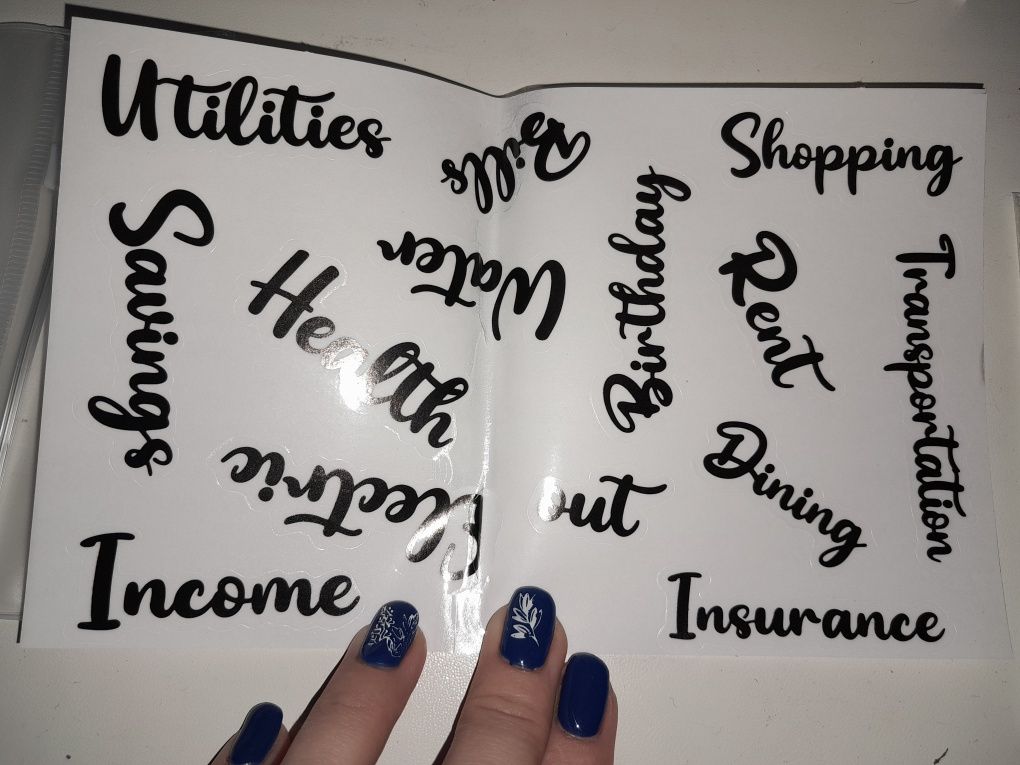 Utilities
Bills
Shopping
Savings
Water
Birthday
Rent
Transportation
Health
Electric
out
Dining
Income
Insurance